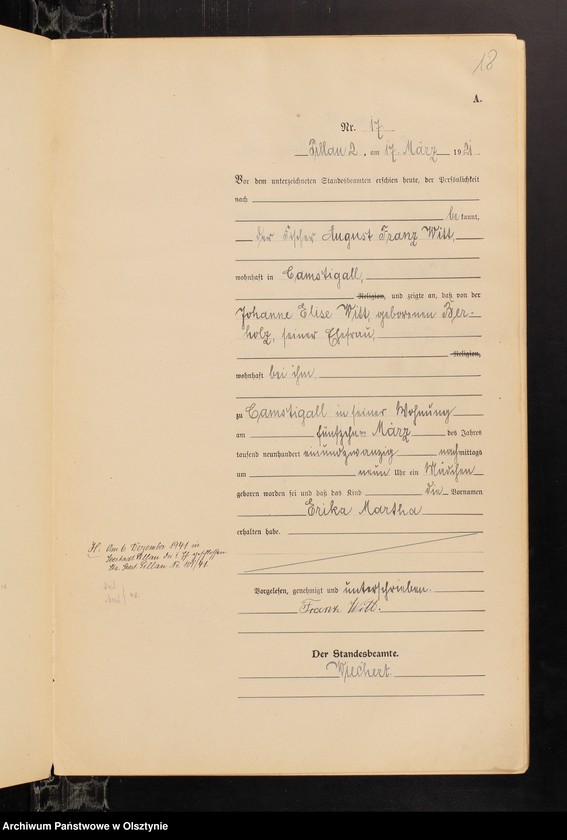 18
A.
Nr. 17
Pillau 2, am 17 März 1921
Vor dem unterzeichneten Standesbeamten erschien heute, der Persönlichkeit
nach
be kannt,
der Fischer August Franz Witt,
wohnhaft in Camstigall,
Religion, und zeigte an, daß von der
Johanne Elise Witt, geborenen Ber-
holz, seiner Ehefrau,
Religion,
wohnhaft bei ihm
zu Camstigall in seiner Wohnung
am fünfzehn März des Jahres
tausend neunhundert einundzwanzig nachmittags
um neun Uhr ein Mädchen
geboren worden sei und daß das Kind die Vornamen
Erika Martha
erhalten habe.
Vorgelesen, genehmigt und unterschrieben.
Franz Witt.
Der Standesbeamte.
Wiechert
H. Am 6 Dezember 1941 in
Seestadt Pillau die 1. Eh geschlossen
Pillau Nr.
Archiwum Państwowe w Olsztynie